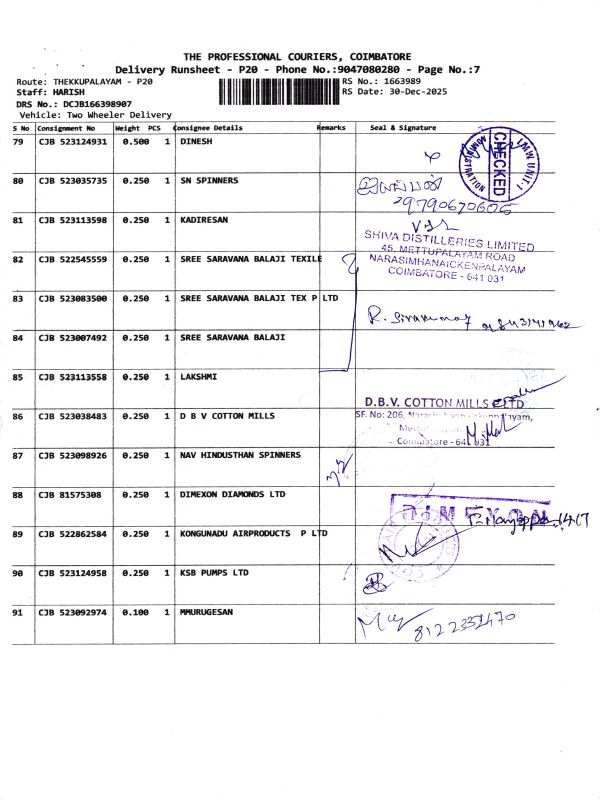 THE PROFESSIONAL COURIERS, COIMBATORE
Delivery Runsheet - P20 - Phone No.:9047080280 - Page No.:7
Route: THEKKUPALAYAM - P20
RS No.: 1663989
Staff: HARISH
RS Date: 30-Dec-2025
DRS No.: DCJB166398907
Vehicle: Two Wheeler Delivery
S No Consignment No Weight PCS Consignee Details Remarks Seal & Signature
79 CJB 523124931 0.500 1 DINESH
CHECKED
UNIT-1
80 CJB 523035735 0.250 1 SN SPINNERS
81 CJB 523113598 0.250 1 KADIRESAN
SHIVA DISTILLERIES LIMITED
45, METTUPALAYAM ROAD
82 CJB 522545559 0.250 1 SREE SARAVANA BALAJI TEXILE
NARASIMHANAICKENPALAYAM
COIMBATORE - 641 031
83 CJB 523083500 0.250 1 SREE SARAVANA BALAJI TEX P LTD
R. Sivakumar
84 CJB 523007492 0.250 1 SREE SARAVANA BALAJI
85 CJB 523113558 0.250 1 LAKSHMI
D.B.V. COTTON MILLS LTD
86 CJB 523038483 0.250 1 D B V COTTON MILLS
SF. No: 206,
Coimbatore - 641 031
87 CJB 523098926 0.250 1 NAV HINDUSTHAN SPINNERS
88 CJB 81575308 0.250 1 DIMEXON DIAMONDS LTD
DIMEXON
89 CJB 522862584 0.250 1 KONGUNADU AIRPRODUCTS P LTD
90 CJB 523124958 0.250 1 KSB PUMPS LTD
91 CJB 523092974 0.100 1 MMURUGESAN